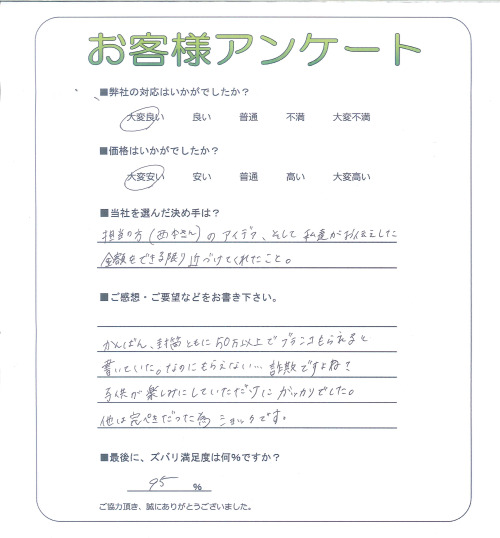 お客様アンケート
■弊社の対応はいかがでしたか?
大変良い 良い 普通 不満 大変不満
■価格はいかがでしたか?
大変安い 安い 普通 高い 大変高い
■当社を選んだ決め手は?
担当の方(西本さん)のアイデア、そして私達がお伝えした
金額をできる限り近づけてくれたこと。
■ご感想・ご要望などをお書き下さい。
かんばん、封筒ともに50万以上でブランコもらえると
書いていた。なのにもらえない…詐欺ですよね?
子供が楽しみにしていただけにガッカリでした。
他は完ぺきだった為ショックです。
■最後に、ズバリ満足度は何%ですか?
95 %
ご協力頂き、誠にありがとうございました。